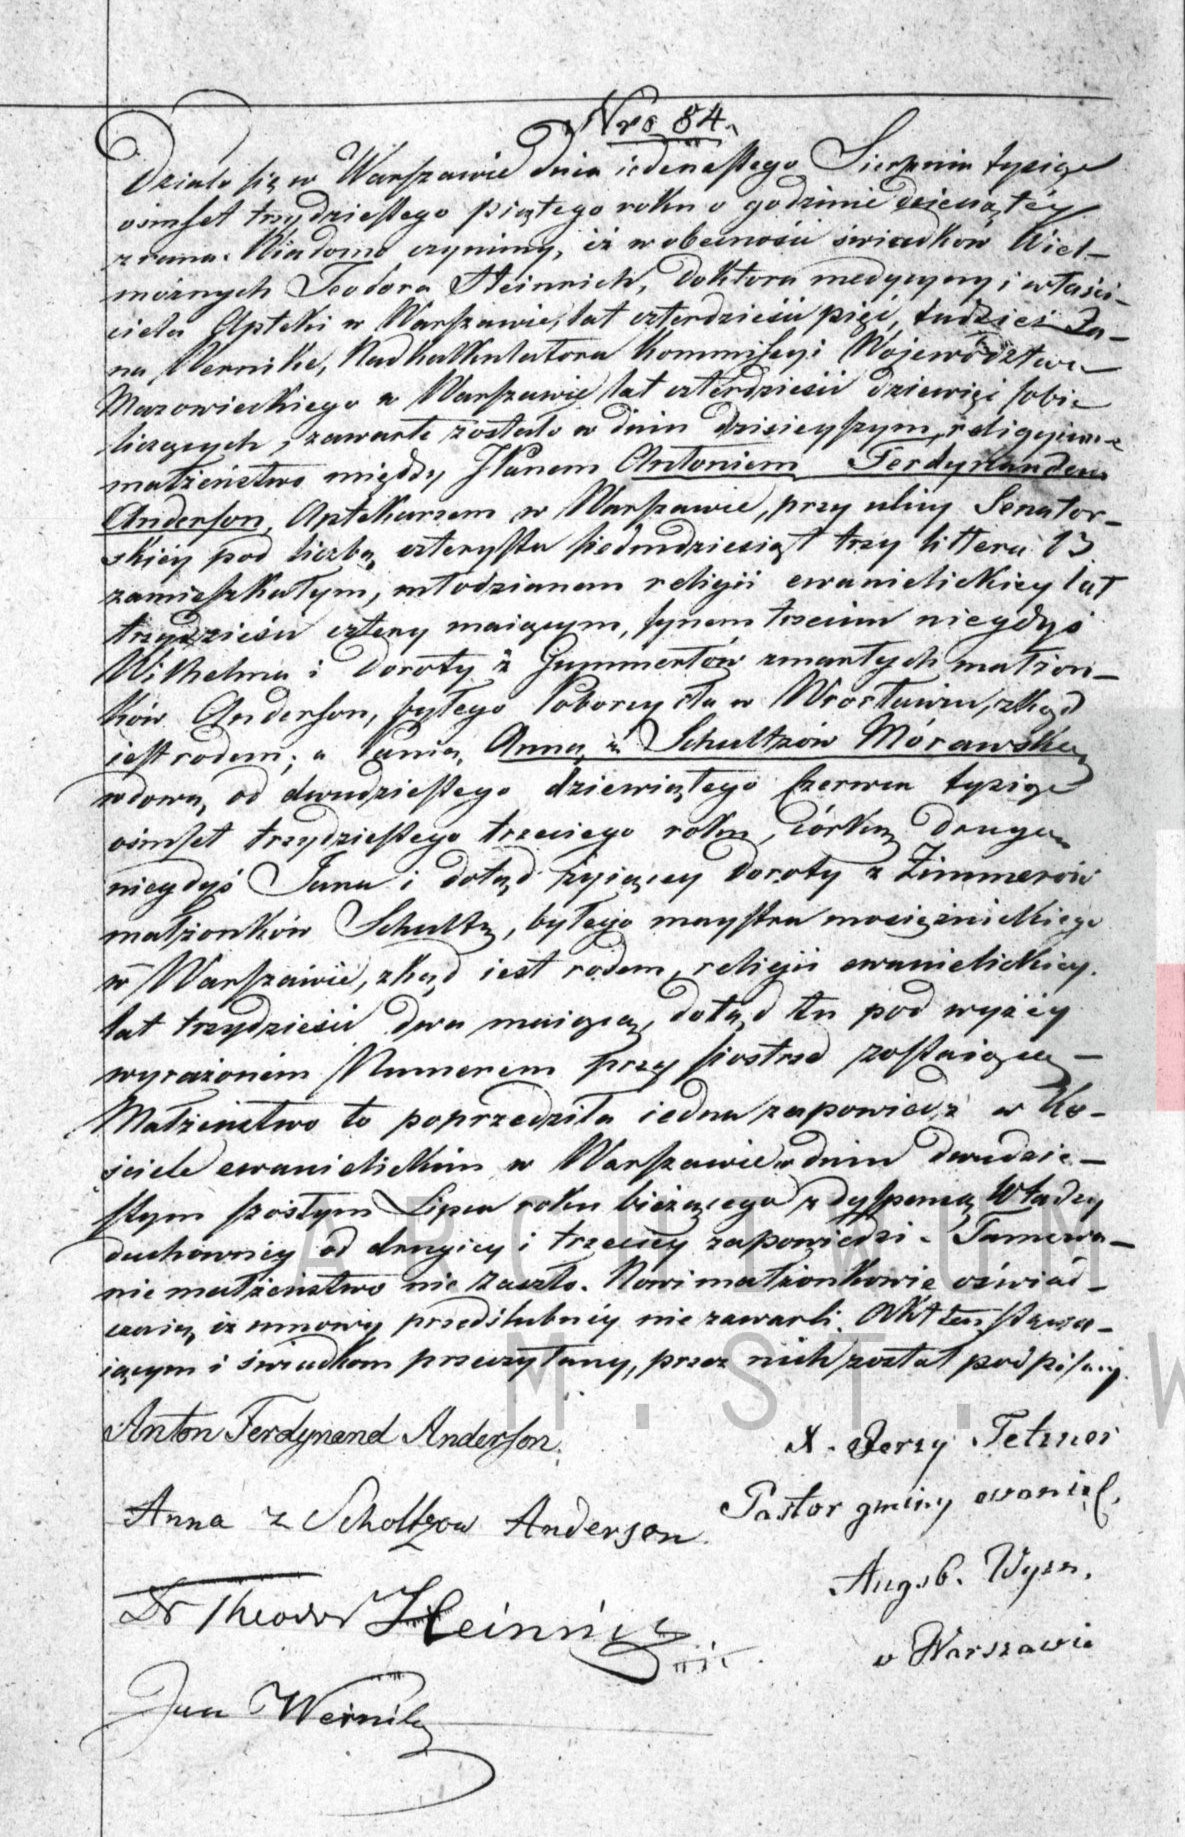 Nro 84.
Działo się w Warszawie dnia iedenastego Sierpnia tysiąc
ośmset trzydziestego piątego roku o godzinie dziesiątéy
z rana. Wiadomo czynimy, iż w obecności świadków Wiel-
możnych Teodora Heinrich, Doktora medycyny i właści-
ciela Apteki w Warszawie, lat czterdzieści pięć, tudzież Ja-
na Wernike, Nadkalkulatora Kommissyi Województwa
Mazowieckiego w Warszawie lat czterdzieści dziewięć sobie
liczących, zawarte zostało w dniu dzisieyszym religijne
małżeństwo między JPanem Antoniem Ferdynandem
Anderson, Aptekarzem w Warszawie, przy ulicy Senator-
skiéy pod liczbą czterysta siedmdziesiąt trzy littera B
zamieszkałym, młodzianem religii ewanielickiey lat
trzydzieści cztery maiącym, synem trzecim niegdyś
Wilhelma i Doroty z Gummertów zmarłych małżon-
ków Anderson, byłego Poborcy cła w Wrocławiu, zkąd
iest rodem; a Panią Anną z Schultzów Mórawską
wdową od dwudziestego dziewiątego Czerwca tysiąc
ośmset trzydziestego trzeciego roku, córką drugą
niegdyś Jana i dotąd żyiącey Doroty z Zimmerów
małżonków Schultz, byłego maystra mosiężnickiego
w Warszawie, zkąd iest rodem, religii ewanielickiey.
lat trzydzieści dwa maiącą, dotąd tu pod wyżéy
wyrażonem Numerem przy siostrze zostaiącą –
Małżeństwo to poprzedziła iedna zapowiedź w Ko-
ściele ewanielickim w Warszawie w dniu dwudzie-
stym szóstym Lipca roku bieżącego z dyspensą Władzy
duchownéy od drugiey i trzeciéy zapowiedzi. Tamowa-
nie małżeństwo nie zaszło. Nowi małżonkowie oświad-
czaią, iż umowy przedślubnéy nie zawarli. Akt ten stawa-
iącym i świadkom przeczytany, przez nich został podpisany.
Anton Ferdynand Anderson.
X. Jerzy Tetzner
Anna z Scholtzow Anderson.
Pastor gminy ewaniel.
Augsb. Wyzn.
Dr Theodor Heinrich
w Warszawie
Jan Wernike
ARCHIWUM
M.ST.W